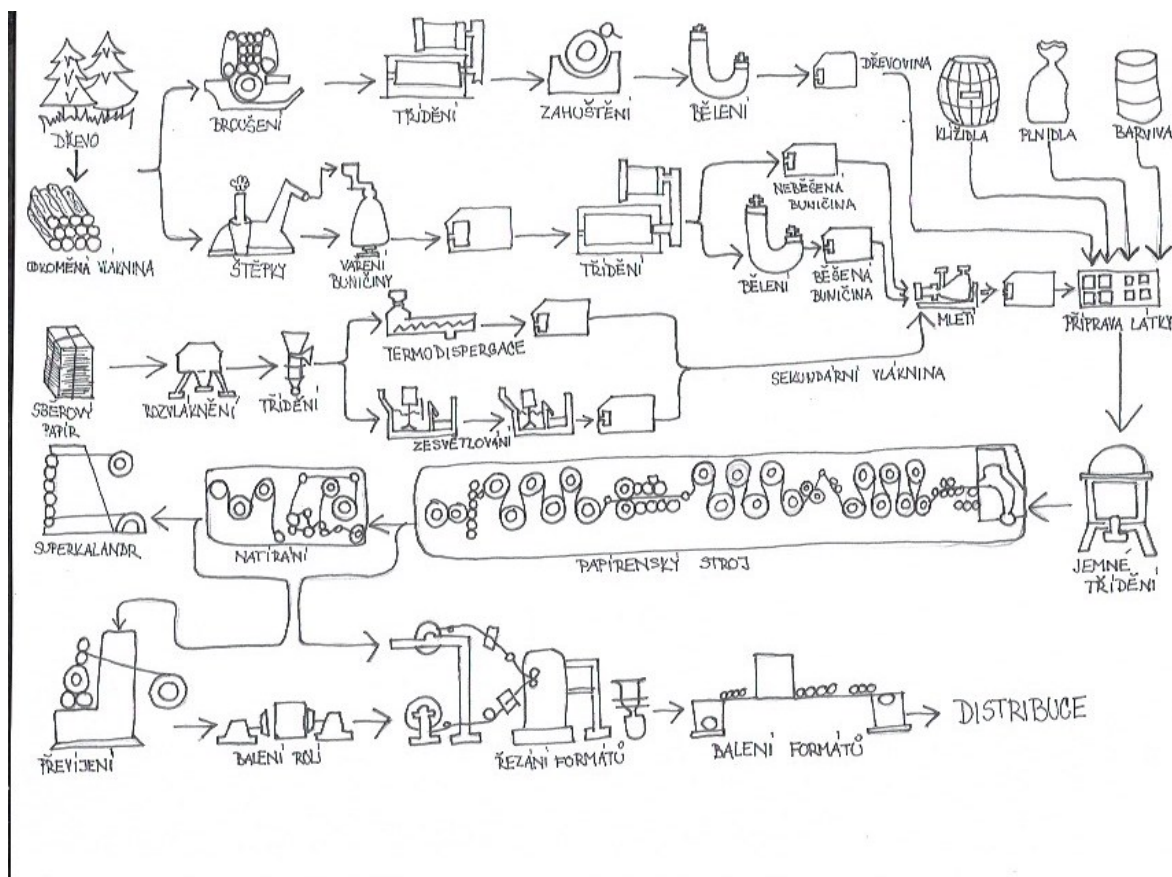 DŘEVO
BROUŠENÍ
TŘÍDĚNÍ
ZAHUŠTĚNÍ
BĚLENÍ
DŘEVOVINA
KLÍŽIDLA
PLNIDLA
BARVIVA
ODKOMĚNÁ VLAKNINA
ŠTĚPKY
VAŘENÍ
BUNIČINY
TŘÍDĚNÍ
NEBĚŠENÁ
BUNIČINA
BĚLENÍ
BĚŠENÁ
BUNIČINA
MLETÍ
PŘÍPRAVA LÁTKY
SBĚROVÝ
PAPÍR
ROZVLÁKNĚNÍ
TŘÍDĚNÍ
TERMODISPERGACE
ZESVĚTLOVÁNÍ
SEKUNDÁRNÍ VLÁKNINA
SUPERKALANDR
NATÍRÁNÍ
PAPÍRENSKÝ STROJ
JEMNÉ
TŘÍDĚNÍ
PŘEVÍJENÍ
BALENÍ ROLÍ
ŘEZÁNÍ FORMÁTŮ
BALENÍ FORMÁTŮ
DISTRIBUCE